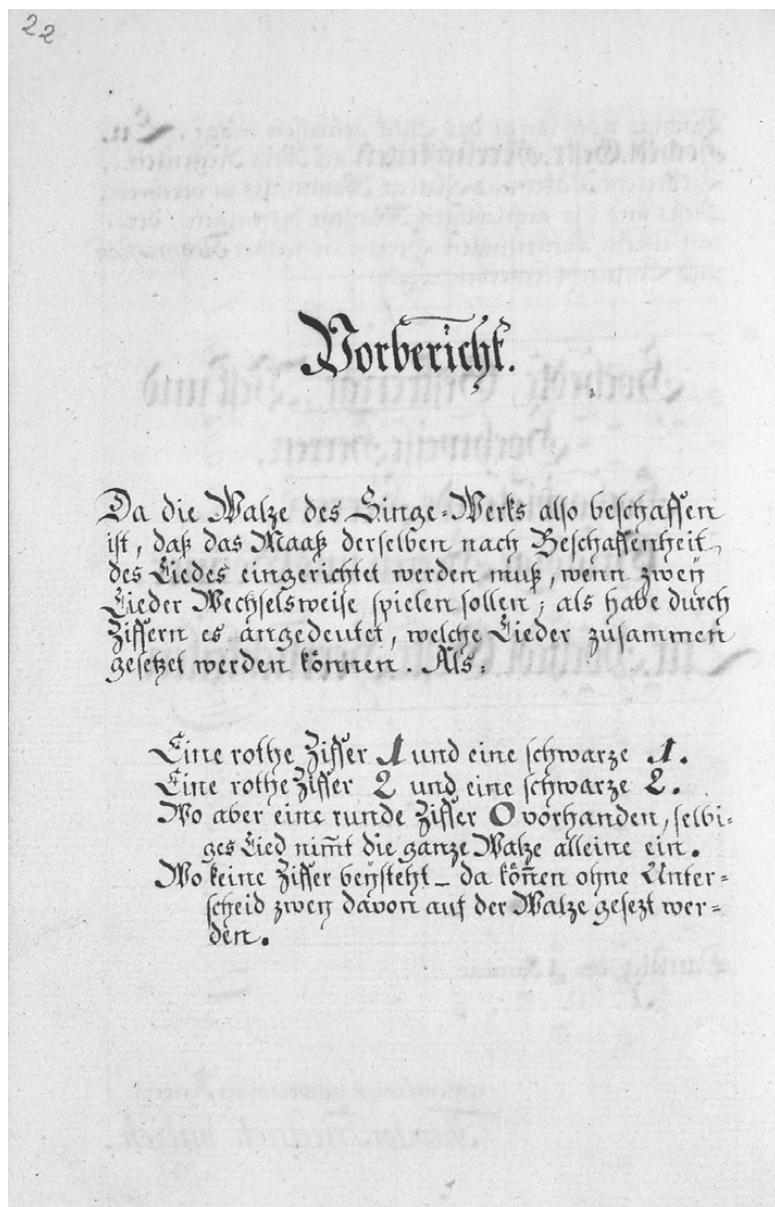 22
Vorbericht.
Da die Walze des Singe-Werks also beschaffen
ist, daß das Maaß derselben nach Beschaffenheit
des Liedes eingerichtet werden muß, wenn zwey
Lieder Wechselsweise spielen sollen; als habe durch
Ziffern es angedeutet, welche Lieder zusammen
gesetzet werden können. Als:
Eine rothe Ziffer 1 und eine schwarze 1.
Eine rothe Ziffer 2 und eine schwarze 2.
Wo aber eine runde Ziffer 0 vorhanden, selbi-
ges Lied nim̄t die ganze Walze alleine ein.
Wo keine Ziffer beysteht – da kön̄en ohne Unter-
scheid zwey davon auf der Walze gesezt wer-
den.